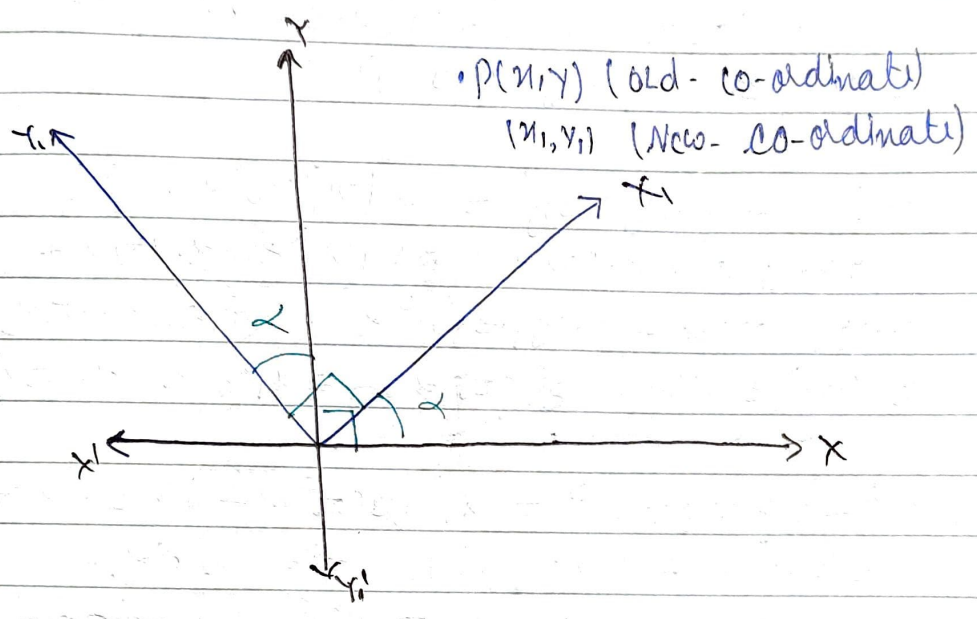 Y
• P(x, y) (Old - Co-ordinate)
Y₁
(x₁, y₁) (New - Co-ordinate)
X₁
α
α
X'
X
Y₁'